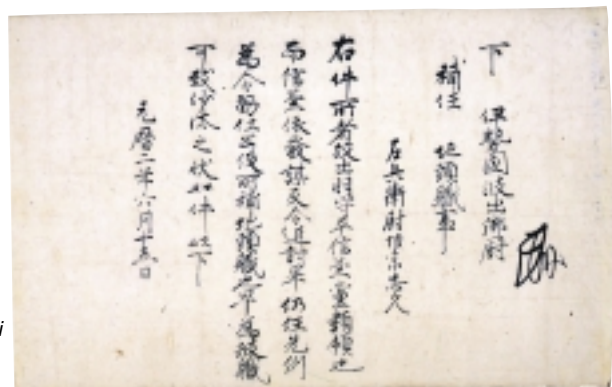 下 伊勢國波出御厨
補任 地頭職事
左兵衛尉惟宗忠久
右件所者故出羽守平信兼黨類領也
而信兼依發謀反令追討畢仍任先例
為令勤仕公役所補地頭職也早為彼職
可致沙汰之状如件以下
元暦二年六月十五日
i